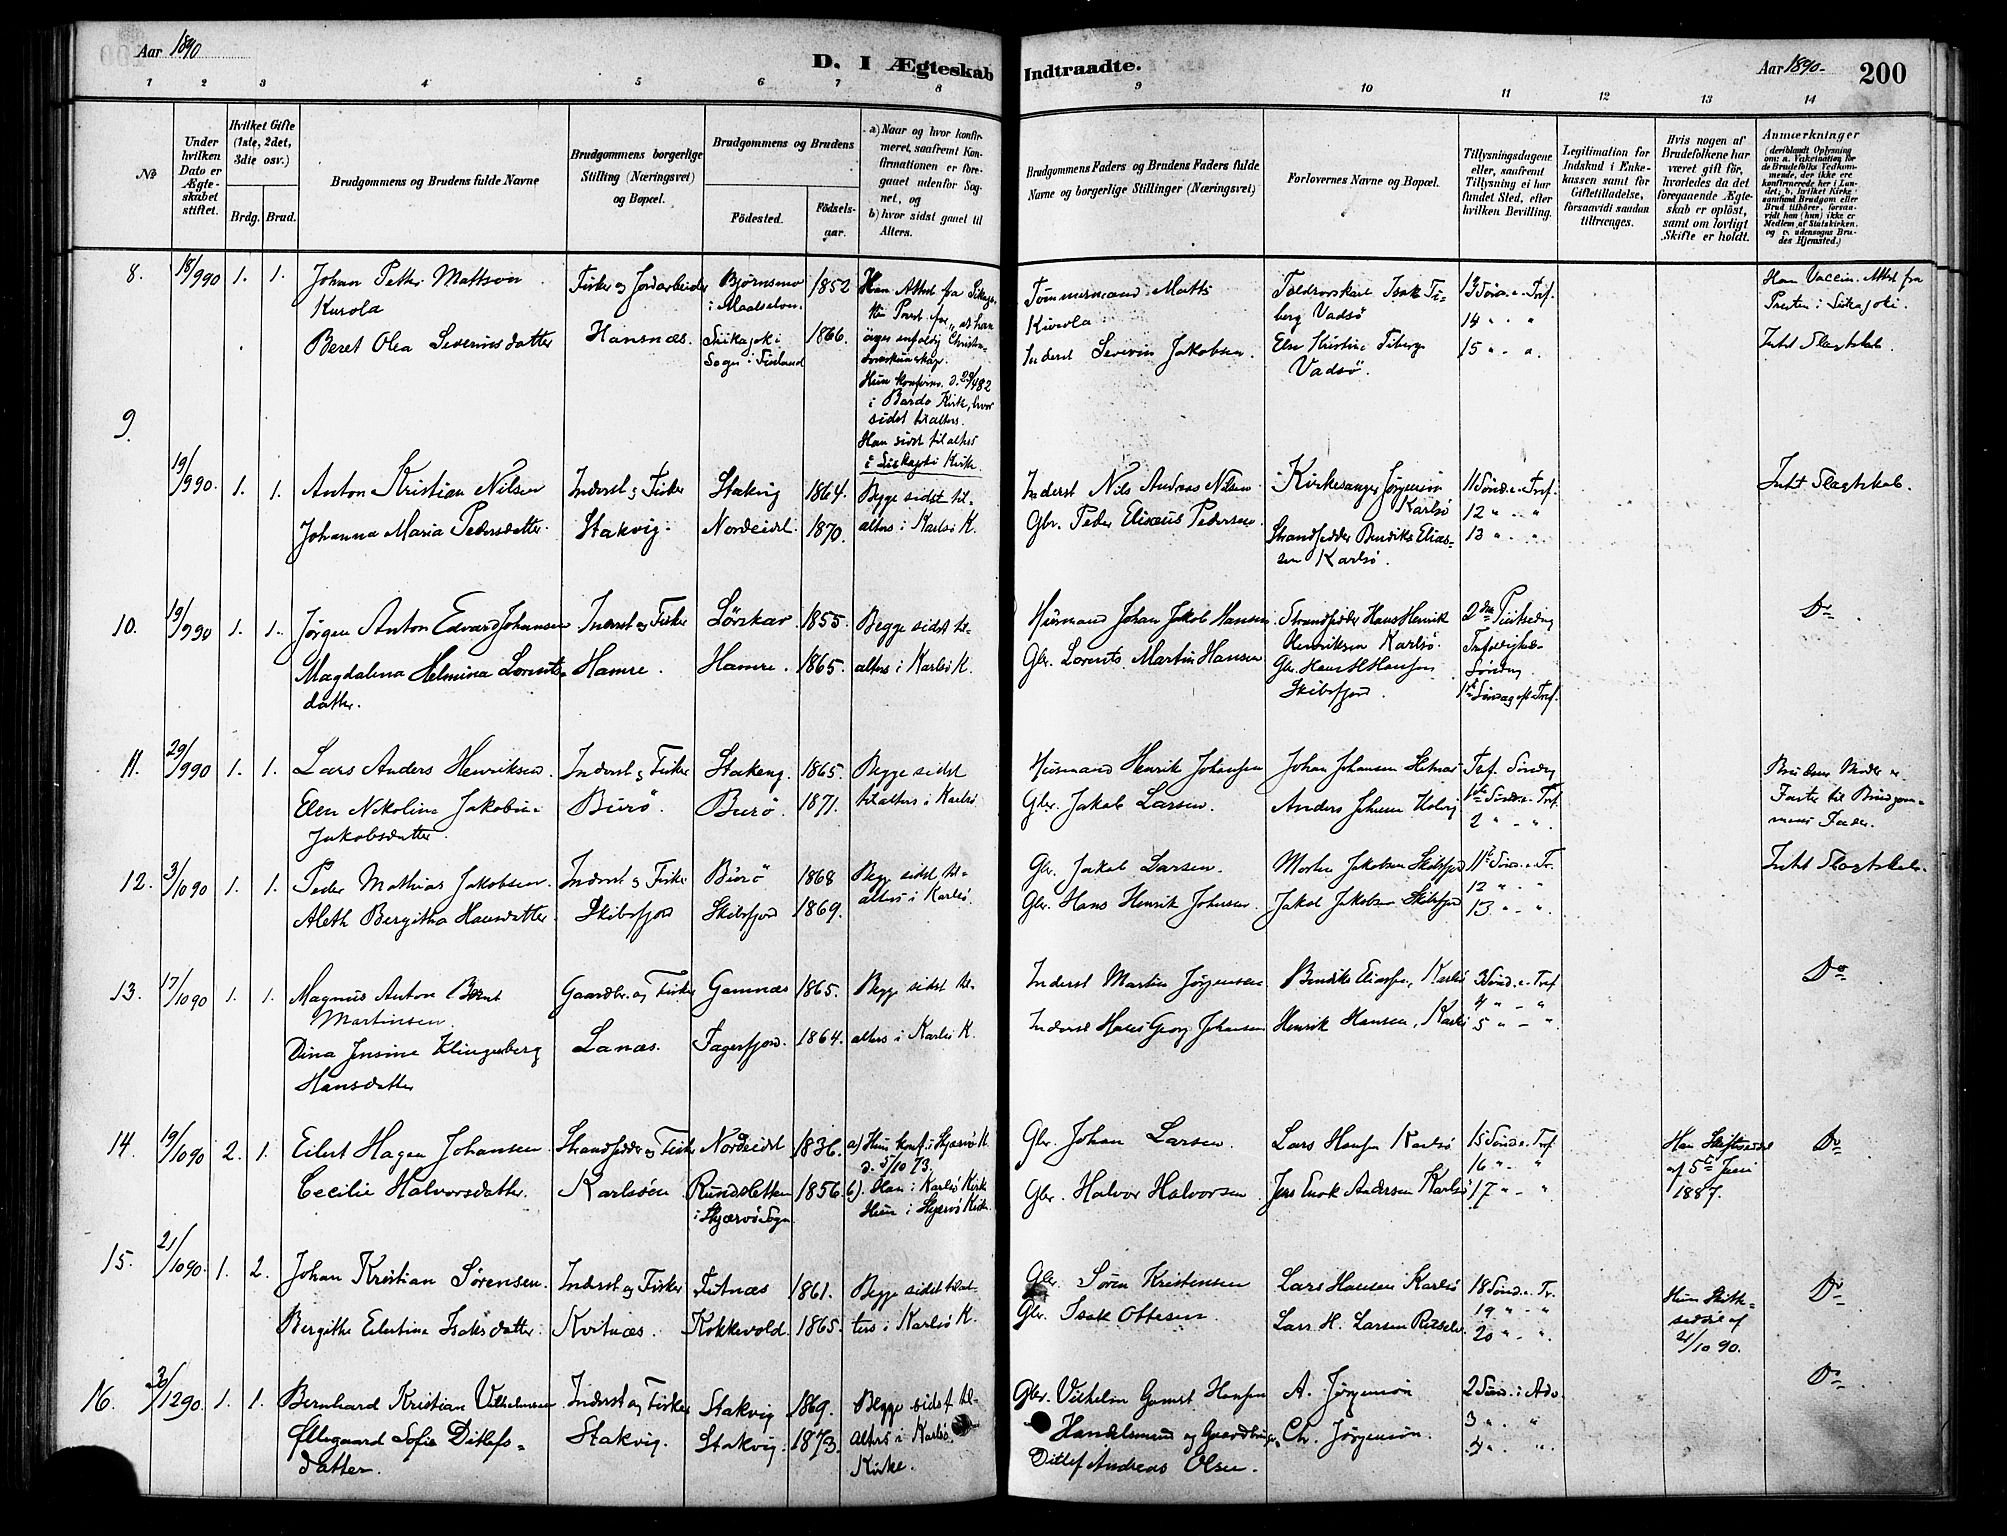 Aar 1890
D. I Ægteskab Indtraadte.
Aar 1890.
200
1 2 3 4 5 6 7 8 9 10 11 12 13 14
No
Under hvilken Dato er Ægteskabet stiftet.
Hvilket Gifte (1ste, 2det, 3die osv.)
Brdg. Brud.
Brudgommens og Brudens fulde Navne
Brudgommens borgerlige Stilling (Næringsvei) og Bopæl.
Brudgommens og Brudens
Födested.
Födselsaar.
a) Naar og hvor konfirmeret, saafremt Konfirmationen er foregaaet udenfor Sognet, og
b) hvor sidst gaaet til Alters.
Brudgommens Faders og Brudens Faders fulde Navne og borgerlige Stillinger (Næringsvei)
Forlovernes Navne og Bopæl.
Tillysningsdagene eller, saafremt Tillysning ei har fundet Sted, efter hvilken Bevilling.
Legitimation for Indskud i Enkekassen samt for Giftetilladelse, forsaavidt saadan tiltrænges.
Hvis nogen af Brudefolkene har været gift för, hvorledes da det foregaaende Ægteskab er oplöst, samt om lovligt Skifte er holdt.
Anmærkninger (deriblandt Oplysning om: a. Vakcination for de Brudefolks Vedkommende, der ikke ere konfirmerede her i Landet; b. hvilket Kirkesamfund Brudgom eller Brud tilhörer, forsaavidt han (hun) ikke er Medlem af Statskirken, og c. udensogns Brudes Hjemsted.)
8. 18/9 90 1. 1. Johan Petter Mattson Kurola
Fisker og Jordarbeider Björnsmo i Maalselven. 1852
Beret Olea Severinsdatter Hansnæs. Siikajoki Sogn i Finland 1866.
Han Attest fra Siikajoki
Hun konfirm. d. 29/4 82 i Bardo Kirk, hvor sidst til alters.
Han sidst til alters i Siikajoki Kirke.
Tömmermand Matts Kurola
Inderst Severin Jakobsen.
Toldrorskarl Isak Fiberg Vadsö
Else Kristine Fiberg Vadsö.
13 Sönd. e. Tref.
14 " "
15 " "
Han Vaccin. Attest fra Presten i Siikajoki.
Intet Slægtskab.
9. 19/9 90. 1. 1. Anton Kristian Nilsen Inderst og Fisker Stakvig 1864. Begge sidst til
Johanna Maria Pedersdatter Stakvig. Nordeidet 1870. alters i Karlsö K.
Inderst Nils Andreas Nilsen
Gbr. Peder Elisæus Pedersen.
Kirkesanger Jörgensen Karlsö
Strandsidder Bendiks Eliassen Karlsö.
11 Sönd. e. Tref.
12 " "
13 " "
Intet Slægtskab.
10. 19/9 90 1. 1. Jörgen Anton Edvard Johansen Inderst og Fisker Lörskar 1855. Begge sidst til-
Magdalena Helmina Lorentsdatter. Hamre. Hamre. 1865. alters i Karlsö K.
Husmand Johan Jakob Hansen
Gbr. Lorents Martin Hansen
Strandsidder Hans Henrik Henriksen Karlsö.
Gbr. Hans H Hansen Skibsfjord.
2den Pintsedag
Trefoldigheds Söndag
1ste Söndag eft. Tref.
Do
11. 29/9 90 1. 1. Lars Anders Henriksen. Inderst og Fisker Stakvig. 1865. Begge sidst
Elen Nikolina Jakobine Jakobsdatter. Burö. Burö. 1871. til alters i Karlsö
Husmand Henrik Johansen
Gbr. Jakob Larsen.
Johan Johansen Helnæs
Anders Johnsen Kobvig
Tref. Söndag
1ste Sönd. e. Tref.
2 " - ".
Brudens Moder er Faster til Brudgommens Fader.
12. 3/10 90 1. 1. Peder Mathias Jakobsen. Inderst og Fisker Burö 1868 Begge sidst til-
Aleth Bergitha Hansdatter Skibsfjord Skibsfjord 1869. alters i Karlsö.
Gbr. Jakob Larsen.
Gbr. Hans Henrik Johnsen
Morten Jakobsen Skibsfjord
Jakob Jakobsen Skibsfjord
11te Sönd. e. Tr.
12 " - "
13 " - ".
Intet Slægtskab.
13. 17/10 90 1. 1. Magnus Anton Bernt Martinsen Gaardbr. og Fisker Gamnæs 1865. Begge sidst til
Dina Jensine Klingenberg Hansdatter Lanæs. Fagerfjord. 1864. alters i Karlsö K.
Inderst Martin Jörgensen
Inderst Hans Georg Johansen
Bendiks Eliassen, Karlsö
Henrik Hansen, Karlsö
3 Sönd. e. Tref
4 " - "
5 " - ".
Do
14. 19/10 90 2. 1. Eilert Hagen Johansen Strandsidder og Fisker Nordeidet 1836. a) Hun konf. i Skjærvö K. d. 5/10 73.
Cecilie Halvorsdatter. Karlsöen Rundsletten i Skjærvö Sogn 1856 b). Han i Karlsö Kirk
Hun i Skjervö Kirk.
Gbr. Johan Larsen.
Gbr. Halvor Halvorsen
Lars Hansen Karlsö
Jens Enok Andersen Karlsö
15 Sönd. e. Tref
16 " - "
17 " - "
Han Skifteseddel af 5te Juni 1887.
Do
15. 21/10 90. 1. 2. Johan Kristian Sörensen. Inderst og Fisker Futnæs 1861. Begge sidst til al-
Bergithe Eilertine Isaksdatter. Kvitnæs. Kokkevold. 1865. ters i Karlsö K.
Gbr. Sören Kristensen
Gbr. Isak Ottesen
Lars Hansen Karlsö
Lars H. Larsen
18 Sönd. e. Tr.
19 " - "
20 " - ".
Hun Skifteseddel af 21/10 90.
Do
16. 30/12 90. 1. 1. Bernhard Kristian Vilhelmsen Inderst og Fisker Stakvig 1869. Begge sidst til-
Ollegaard Sofie Ditlefsdatter. Stakvig. Stakvig. 1873. alters i Karlsö Kirke.
Gbr. Vilhelm Gamst Hansen
Handelsmand og Gaardbruger
Ditlef Andreas Olsen.
A. Jörgensön
Chr. Jörgensön.
2 Sönd. i Adv.
3 " "
4 " "
Do